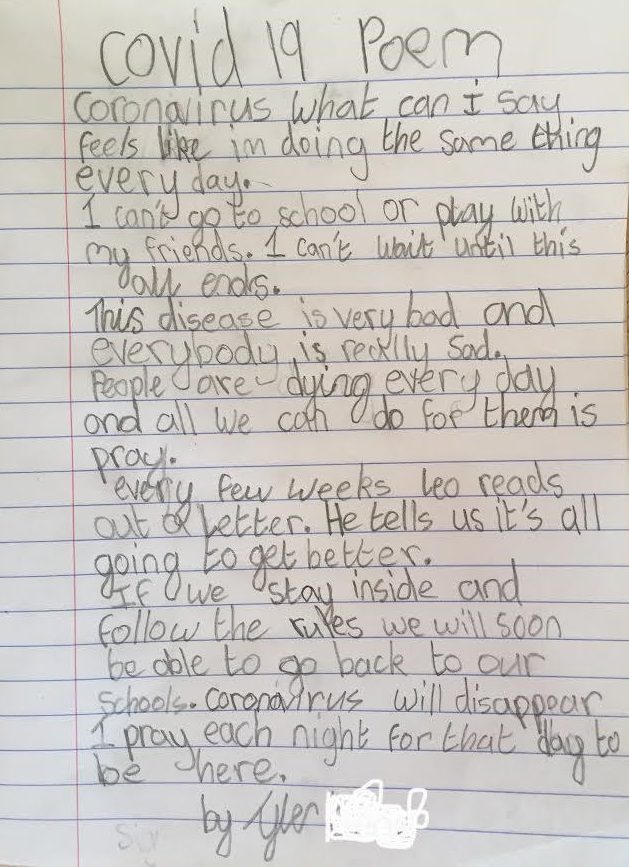 Covid 19 Poem
Coronavirus what can I say
feels like im doing the same thing
every day.
I can't go to school or play with
my friends. I can't wait until this
all ends.
This disease is very bad and
everybody is really sad.
People are dying every day
and all we can do for them is
pray.
every few weeks Leo reads
out a letter. He tells us it's all
going to get better.
If we stay inside and
follow the rules we will soon
be able to go back to our
schools. Coronavirus will disappear
I pray each night for that day to
be here.
by Tyler